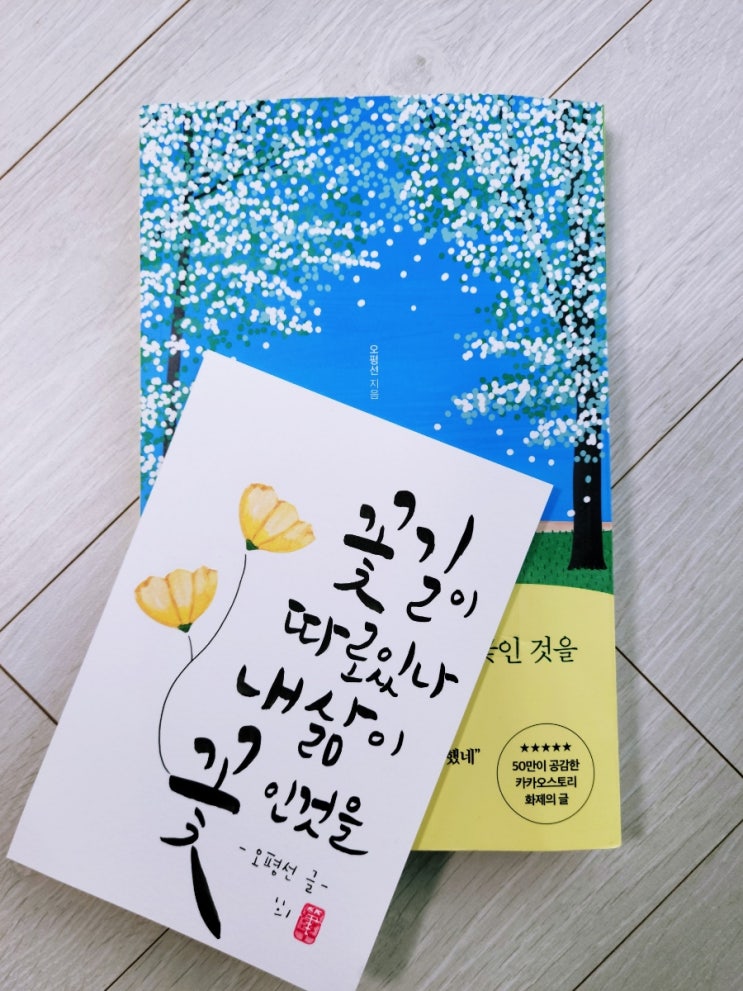 오평선 지음
꽃인 것을
했네"
★★★★★
50만이 공감한
카카오스토리
화제의 글
꽃길이
따로있나
내삶이
꽃인것을
-오평선 글-